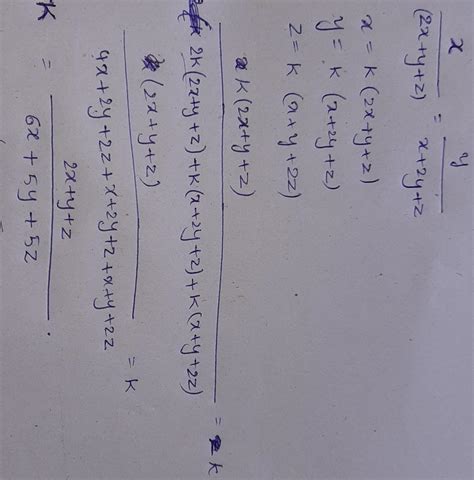 x/(2x+y+z) = y/x+2y+z
x = k (2x+y+z)
y = k (x+2y+z)
z = k (x+y+2z)
k(2x+y+z)/2k(2x+y+z)+k(x+2y+z)+k(x+y+2z) = k
(2x+y+z)/4x+2y+2z+x+2y+z+x+y+2z = k
k = 2x+y+z/6x+5y+5z.